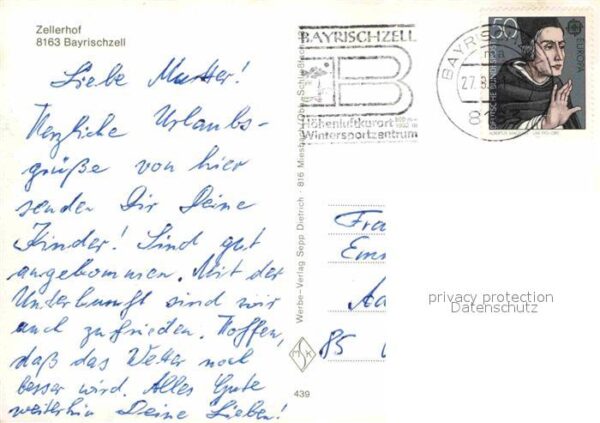 Zellerhof
8163 Bayrischzell
Liebe Mutter!
Herzliche Urlaubs-
grüße von hier
senden Dir Deine
Kinder! Sind gut
angekommen. Mit der
Unterkunft sind wir
auch zufrieden. Hoffen,
daß das Wetter noch
besser wird. Alles Gute
weiterhin Deine Lieben!
Werbe-Verlag Sepp Dietrich · 816 Miesbach/Obb.
439
BAYRISCHZELL
B
Höhenluftkurort
Wintersportzentrum
BAYRIS
27.8.
81
50
EUROPA
DEUTSCHE BUNDESPOST
Fra
Ems
Aa
85
privacy protection
Datenschutz